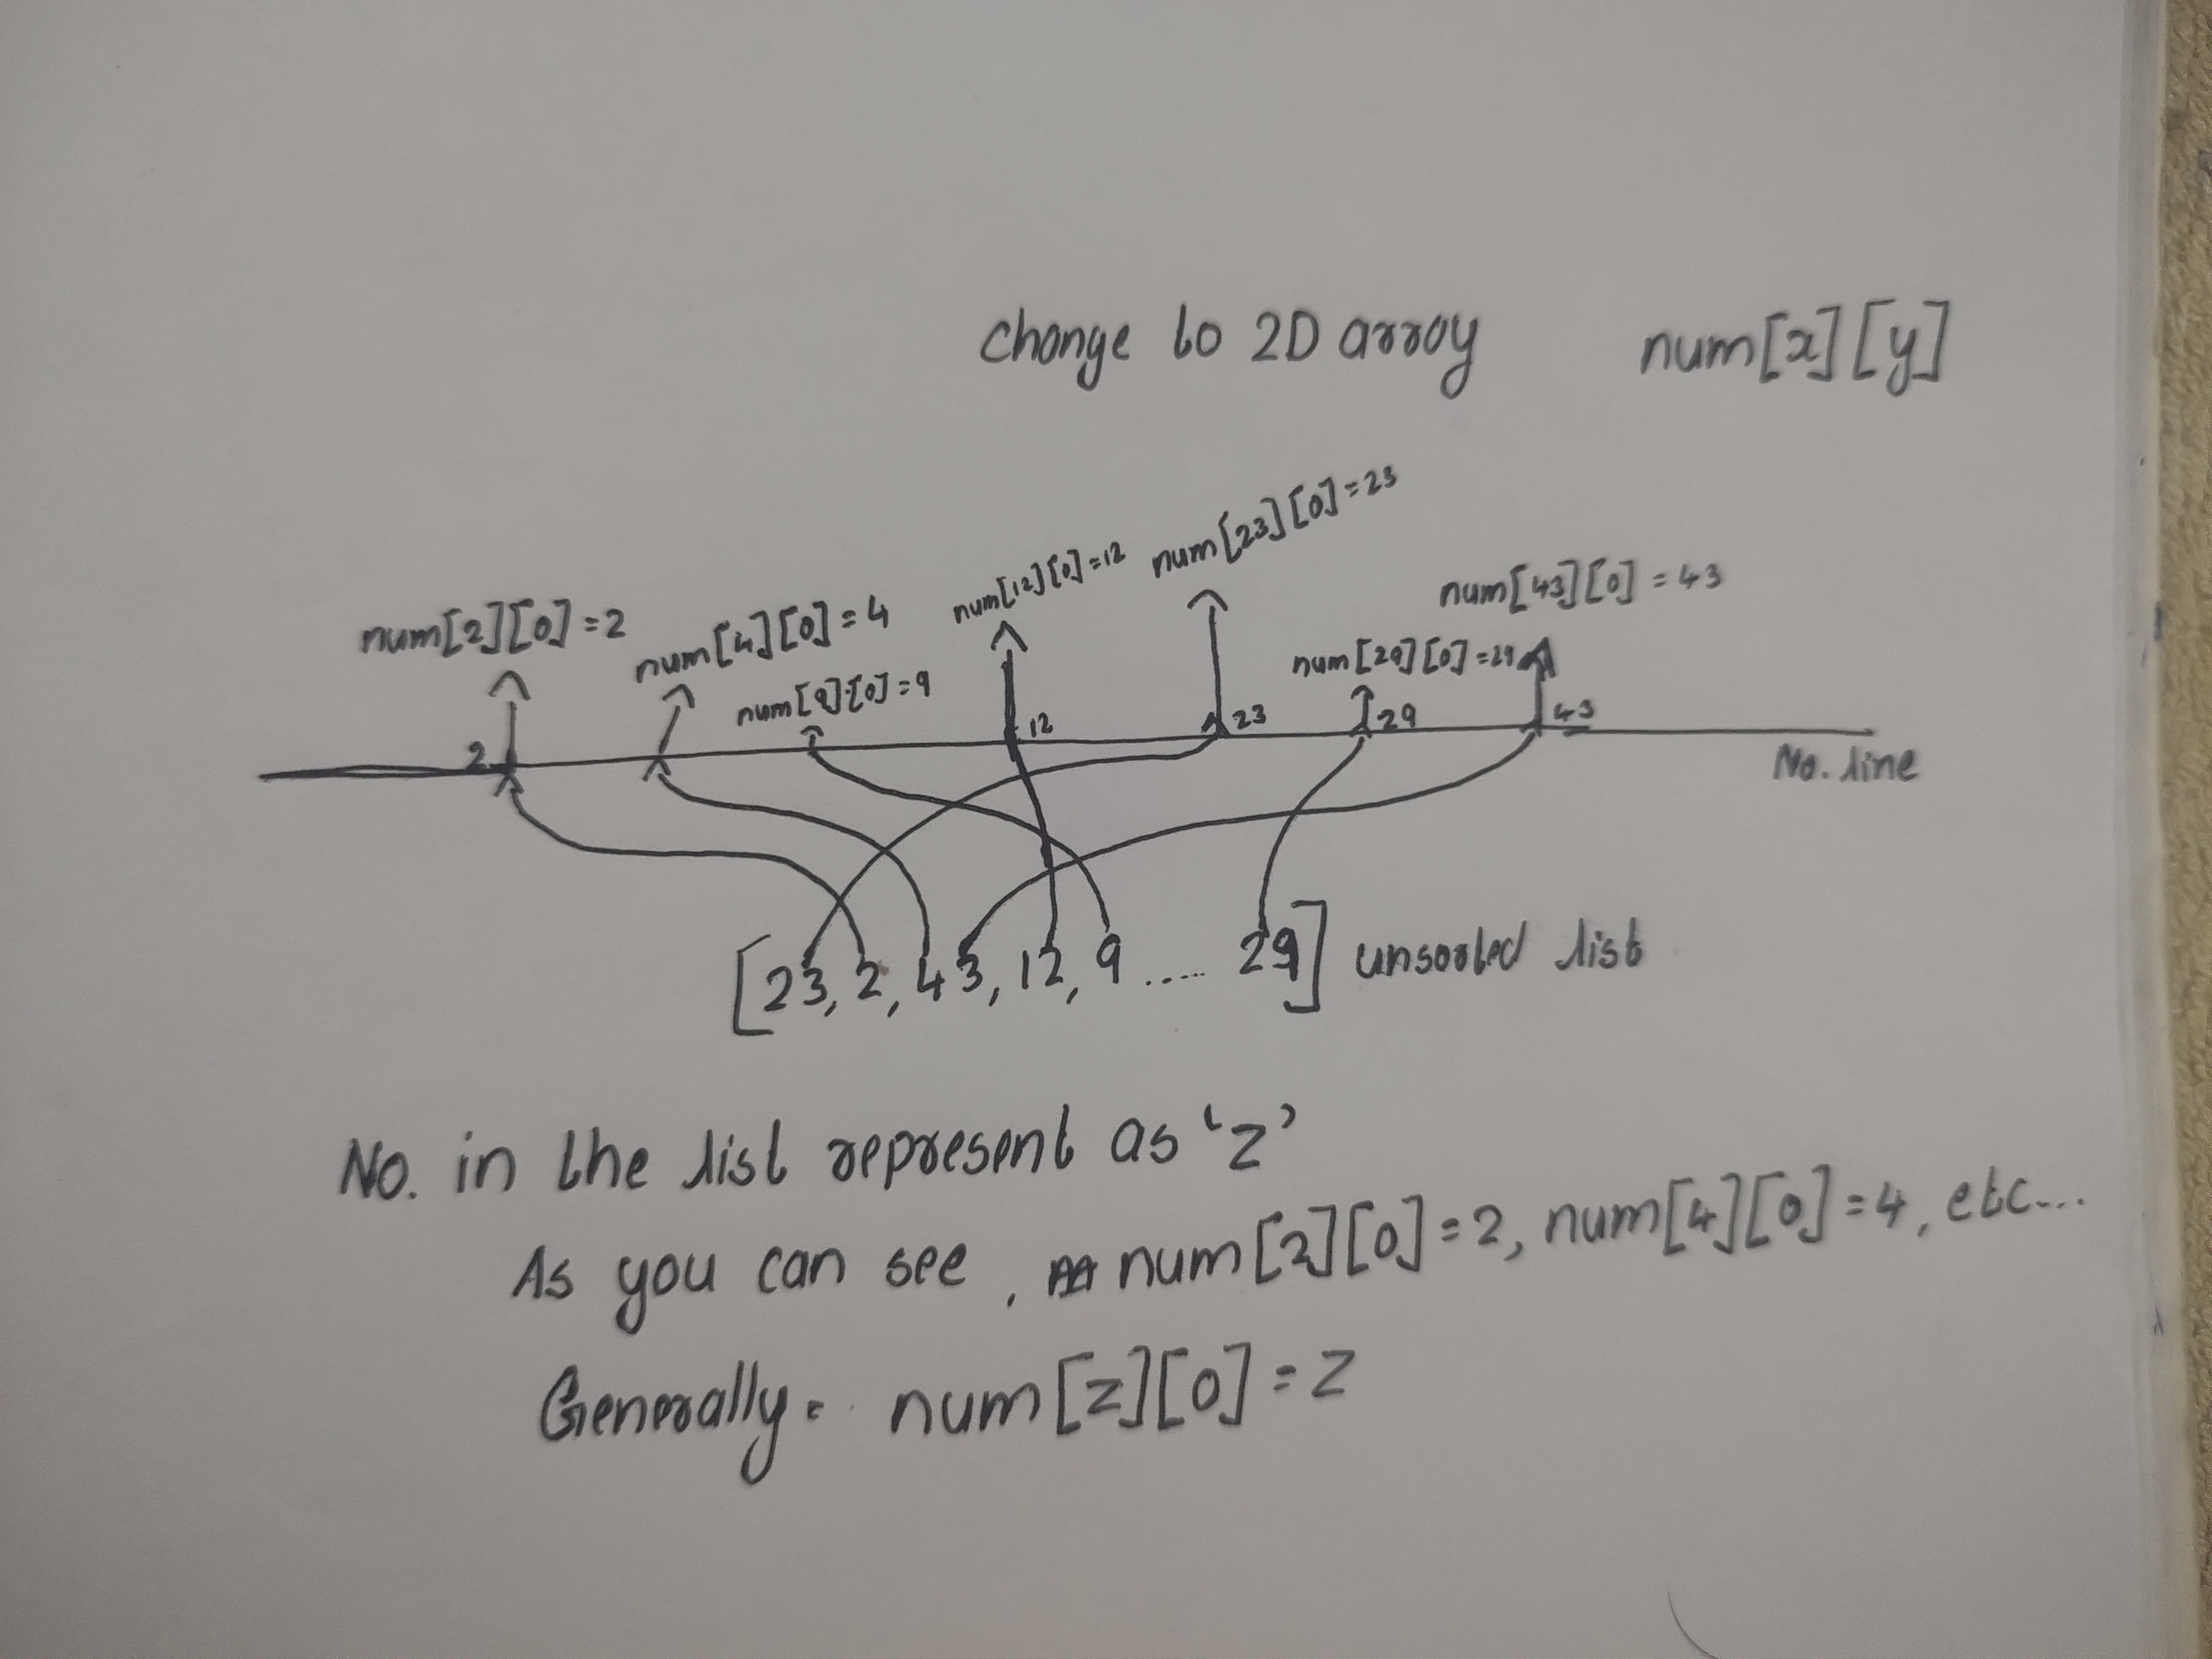 Change to 2D array num[x][y]
num[2][0]=2 num[4][0]=4 num[9][0]=9 num[12][0]=12 num[23][0]=23 num[29][0]=29 num[43][0]=43
2 12 23 29 43
No. line
[23, 2, 43, 12, 9 ..... 29] unsorted list
No. in the list represent as 'Z'
As you can see, num[2][0]=2, num[4][0]=4, etc...
Generally = num[Z][0] = Z